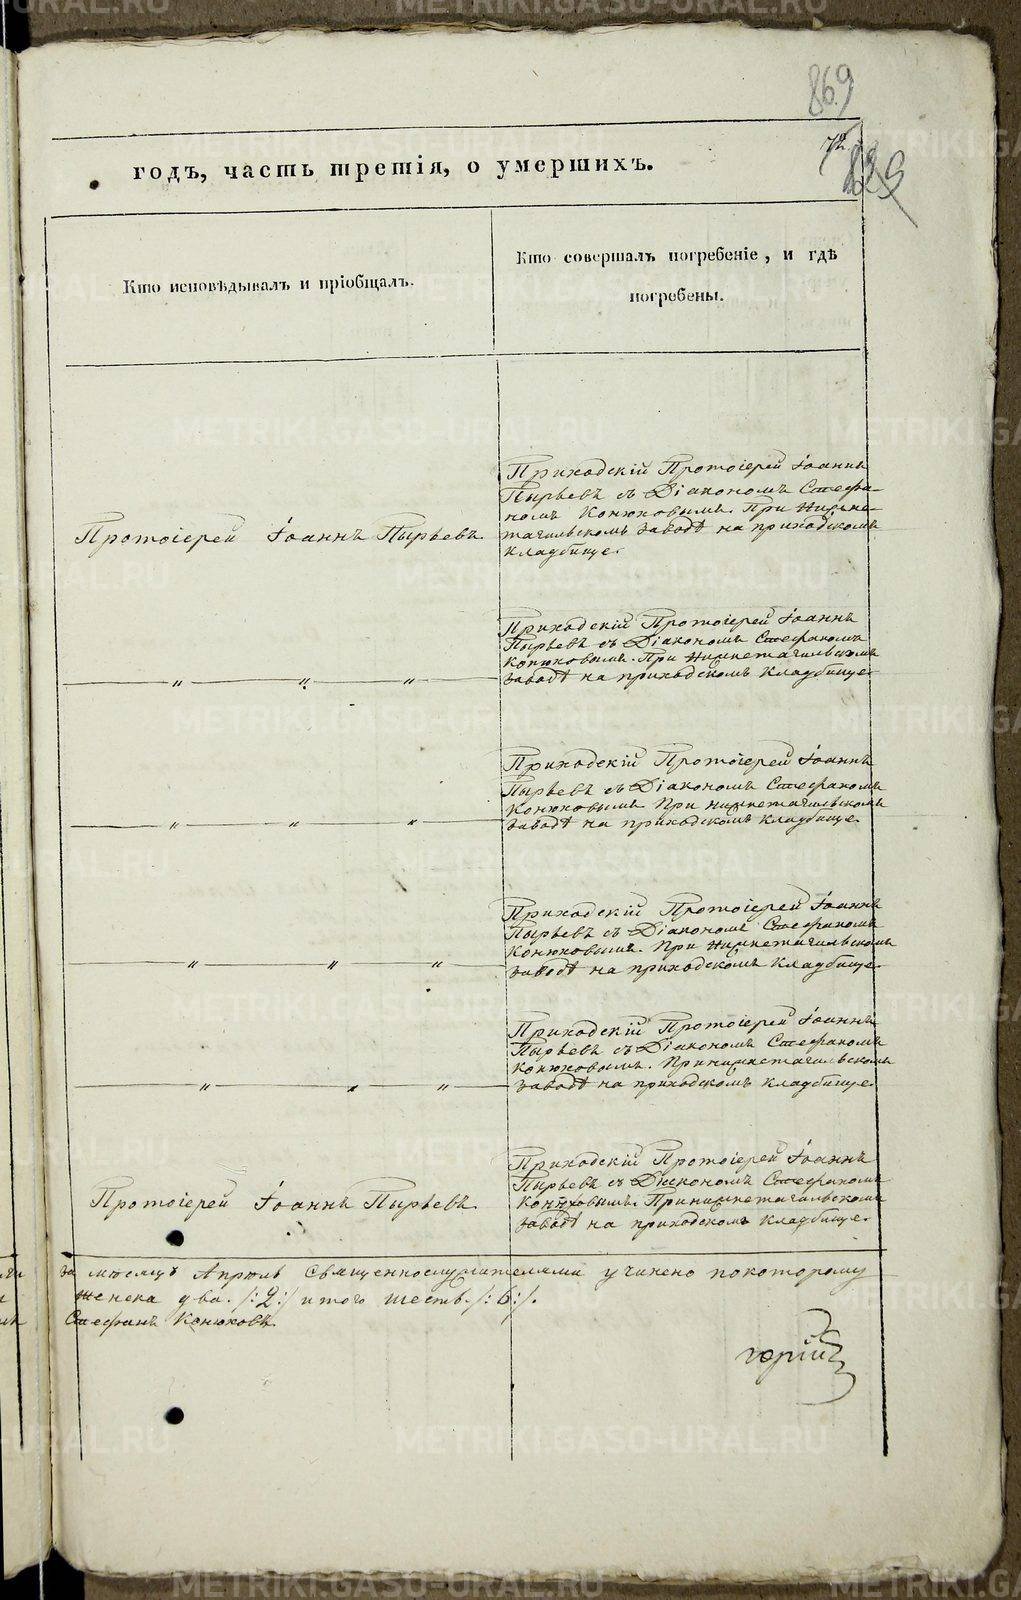 869
72
829
годъ, часть третія, о умершихъ.
Кто исповѣдывалъ и пріобщалъ.
Кто совершалъ погребеніе, и гдѣ
погребены.
Протоіерей Іоаннъ Пырьевъ.
Приходскій Протоіерей Іоаннъ
Пырьевъ съ Діакономъ Стефа-
номъ Конюховымъ. При Нижне-
тагильскомъ заводѣ на приходскомъ
кладбище.
„ „ „
Приходскій Протоіерей Іоаннъ
Пырьевъ съ Діакономъ Стефаномъ
Конюховымъ. При Нижнетагильскомъ
заводѣ на приходскомъ кладбище.
„ „ „
Приходскій Протоіерей Іоаннъ
Пырьевъ съ Діакономъ Стефаномъ
Конюховымъ При нижнетагильскомъ
заводѣ на приходскомъ кладбище.
„ „ „
Приходскій Протоіерей Іоаннъ
Пырьевъ съ Діакономъ Стефаномъ
Конюховымъ. При Нижнетагильскомъ
заводѣ на приходскомъ кладбище.
„ „ „
Приходскій Протоіерей Іоаннъ
Пырьевъ съ Діакономъ Стефаномъ
Конюховымъ. При нижнетагильскомъ
заводѣ на приходскомъ кладбище.
Протоіерей Іоаннъ Пырьевъ.
Приходскій Протоіерей Іоаннъ
Пырьевъ съ Діакономъ Стефаномъ
Конюховымъ. При нижнетагильскомъ
заводѣ на приходскомъ кладбище.
за мѣсяцъ Апрѣль Священнослужителями учинено покоторому
женска два. /:2:/ итого шесть. /:6:/.
Стефанъ Конюховъ.
горій
METRIKI.GASO-URAL.RU